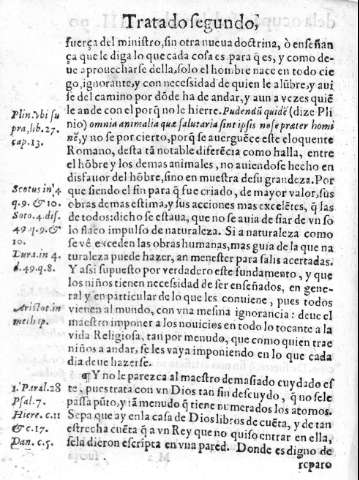 Tratado segundo,
fuerça del ministro, sin otra nueva doctrina, ò enseñan
ça que le diga lo que cada cosa es para q̃ es, y como de-
ue aprouecharse della, solo el hombre nace en todo cie
go, ignorante, y con necessidad de quien le alũbre, y aui
se del camino por dõde ha de andar, y aun a vezes quiẽ
le ande con el porq̃ no le hierre. Pudendũ quidẽ (dize Pli
nio) omnia animalia quæ salutaria sint ipsis nosse prater homi
nẽ, y no se por cierto, porq̃ se auerguẽce este eloquente
Romano, desta tã notable diferẽcia como halla, entre
el hõbre y los demas animales, no auiendose hecho en
disfauor del hõbre, sino en muestra desu grandeza. Por
que siendo el fin para q̃ fue criado, de mayor valor, sus
obras demas estima, y sus acciones mas excelẽtes, q̃ las
de todos: dicho se estaua, que no se auia de fiar de vn so
lo flaco impulso de naturaleza. Si a naturaleza como
se vẽ exceden las obras humanas, mas guia de la que na
turaleza puede hazer, an menester para salis acertadas.
Y assi supuesto por verdadero este fundamento, y que
los niños tienen necessidad de ser enseñados, en gene-
ral y en particular de lo que les conuiene, pues todos
vienen al mundo, con vna mesma ignorancia: deue el
maestro imponer a los nouicios en todo lo tocante a la
vida Religiosa, tan por menudo, que como quien trae
niños a andar, se les vaya imponiendo en lo que cada
dia deue hazerse.
¶ Y no le parezca al maestro demasiado cuydado es
te, pues trata con vn Dios tan sin descuydo, q̃ no sele
passa pũto, y tã menudo q̃ tiene numerados los atomos.
Sepa que ay en la casa de Dios libros de cuẽta, y de tan
estrecha cuẽta q̃ a vn Rey que no quiso entrar en ella,
sela dieron escripta en vna pared. Donde es digno de
reparo
Plin. vbi su
pra, lib. 27.
cap. 13.
Scotus in 4
q. 9. & 10.
Soto. 4. dis.
49 q. 9. &
10.
Dura. in 4.
d. 49. q. 8.
Aristot. in
methep.
1. Paral. 28
Psal. 7.
Hiere. c. 11
& c. 17.
Dan. c. 5.